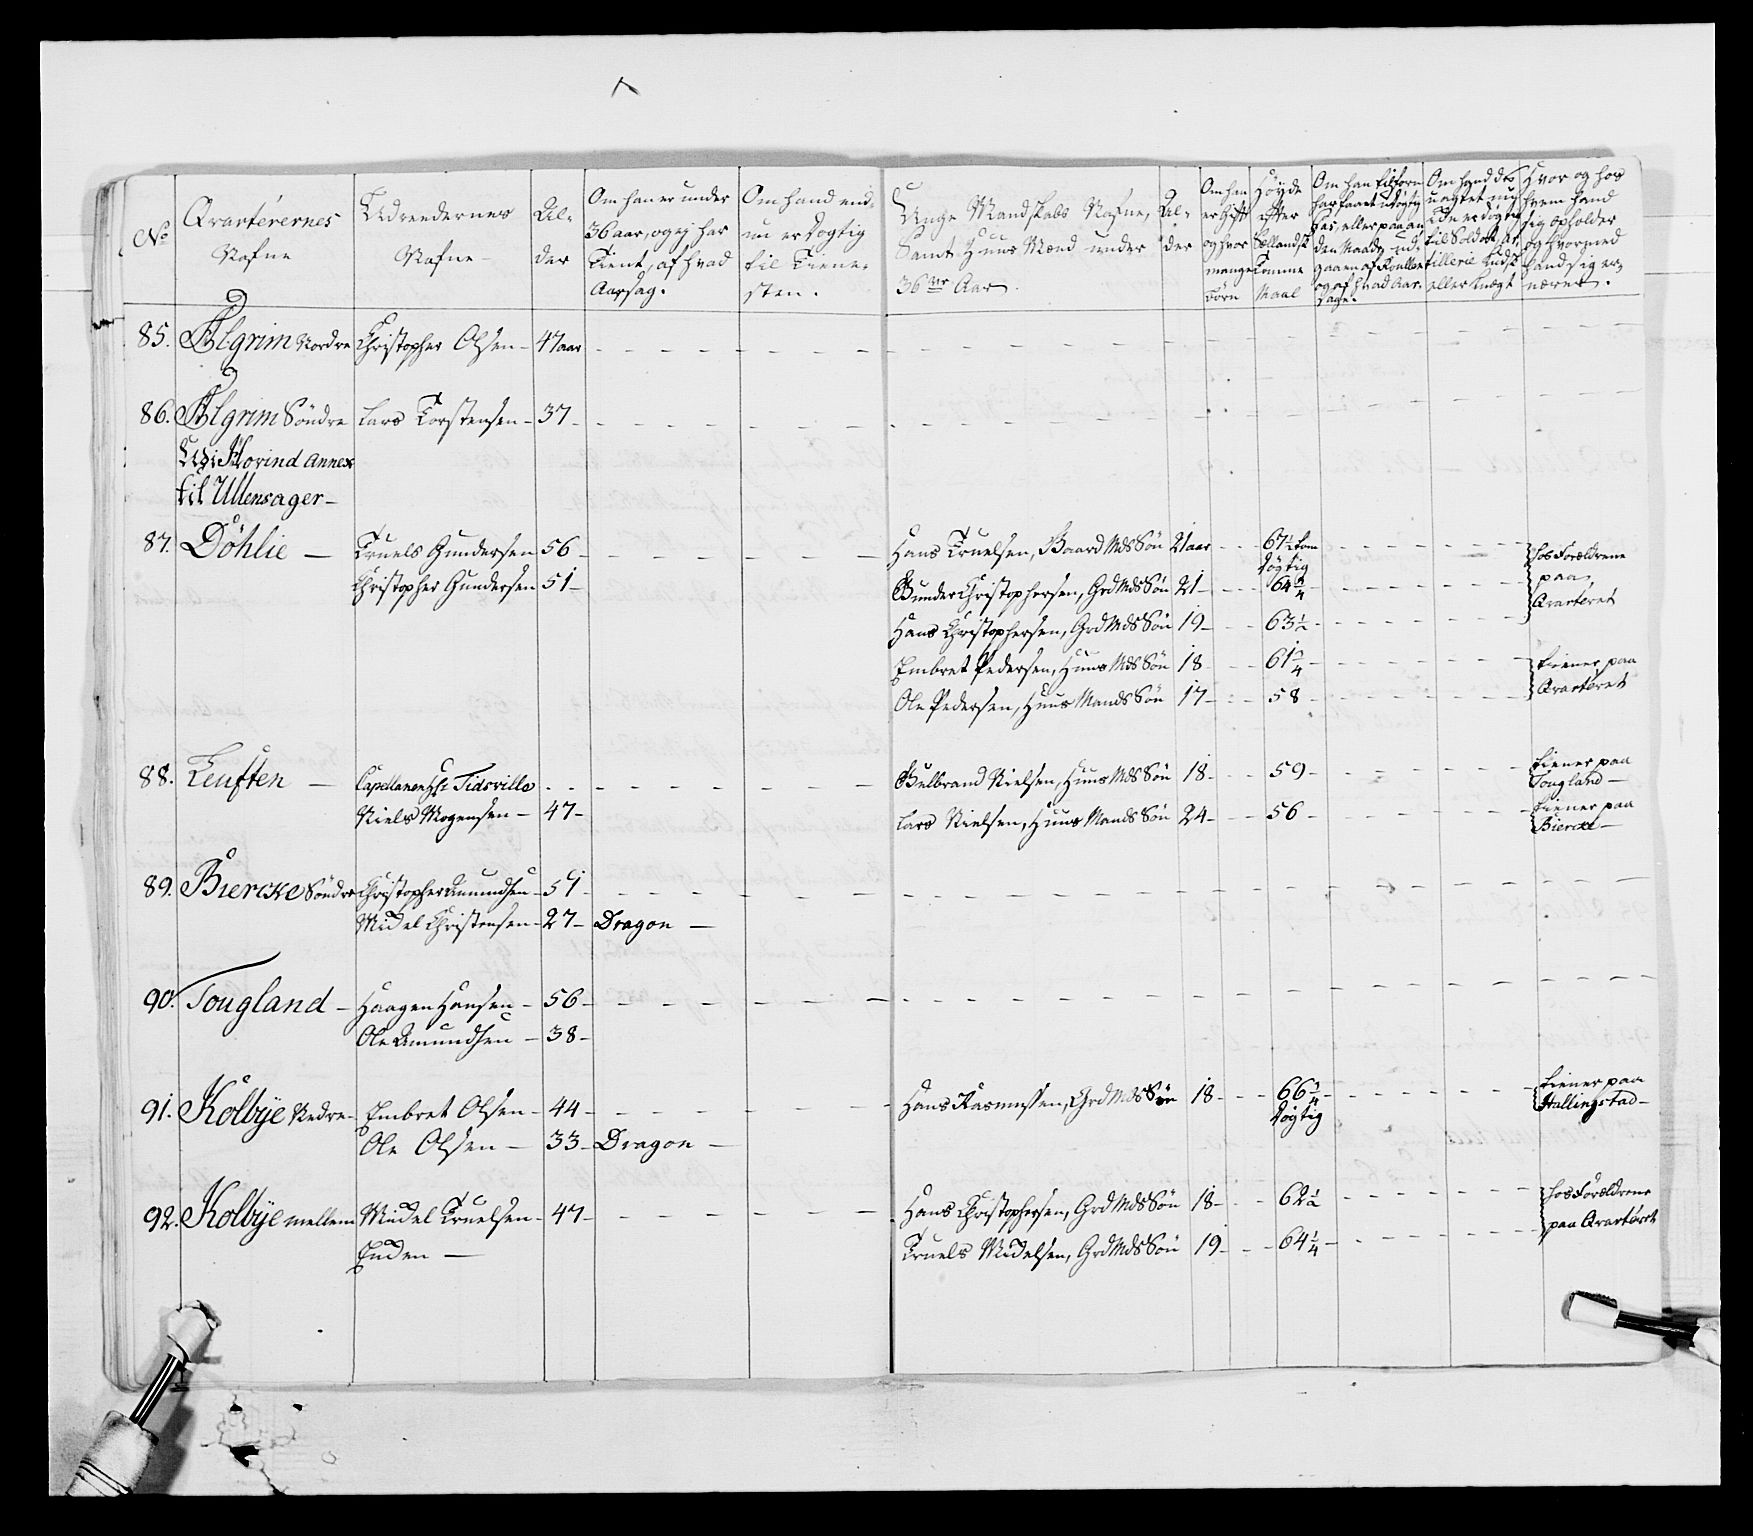 No
Qvarterernes
Nafne
Udreedernes
Nafne
Al-
der
Om han er under
36 aar, og ej har
Tient, af hvad
Aarsag.
Om hand end-
nu er dögtig
til Tiene-
sten.
Unge Mandskabs Nafne,
Samt Huus Mænd under
36ve Aar
Al-
der
Om han
er Gift
og hvor
mange
börn
Höyde
efter
Sællandsk
Tomme
Maal
Om han tilforn
har faaet
Pas, eller paa an
den Maade ud-
gaaen af Roullen
og af hvad Aar-
sage.
Om hand des
uagtet nu
er dögtig
til Soldat, Ar
tillerie Kudsk
eller Knægt
Hvor og hos
hvem hand
sig opholder
og hvormed
hand sig er-
nærer.
85. Algrim Nordre Christopher Olsen - 47 aar
86. Algrim Söndre Lars Torstensen - 37 -
Udi Hovind Annex
til Ullensager -
87. Döhlie - Truels Gundersen 56 - Hans Truelsen, Gaard Mds Sön 21 aar - 67 1/2 tom
dögtig
hos Forældrene
paa
Qvarteret
Christopher Gundersen 51 - Gunder Christophersen, Grd Mds Sön 21 - 64 3/4 -
Hans Christophersen, Grd Mds Sön 19 - 63 1/2 -
Embret Pedersen, Huus Mds Sön 18 - 61 3/4 - tiener paa
Qvarteret
Ole Pedersen, Huus Mands Sön 17 - 58 -
88. Leuften - Capellanen Hr Tidsville - Gulbrand Nielsen, Huus Mds Sön 18 - 59 - tiener paa
Tougland -
Niels Mogensen - 47 - Lars Nielsen, Huus Mands Sön 24 - 56 - tiener paa
Biercke -
89. Biercke Söndre Christopher Amundsen - 51 -
Midel Christensen - 27 - Dragon -
90. Tougland - Haagen Hansen - 56 -
Ole Amundsen - 38 -
91. Kolbye Nedre - Embret Olsen - 44 - Hans Rasmussen, Grd Mds Sön 18 - 66 1/4 -
dögtig
tiener paa
Hallingstad -
Ole Olsen - 33 - Dragon -
92. Kolbye mellem Midel Truelsen - 47 - Hans Christophersen, Grd Mds Sön 18 - 62 1/2 - hos Forældrene
paa Qvarteret
Enden - Truels Midelsen, Grd Mds Sön 19 - 64 1/4 -